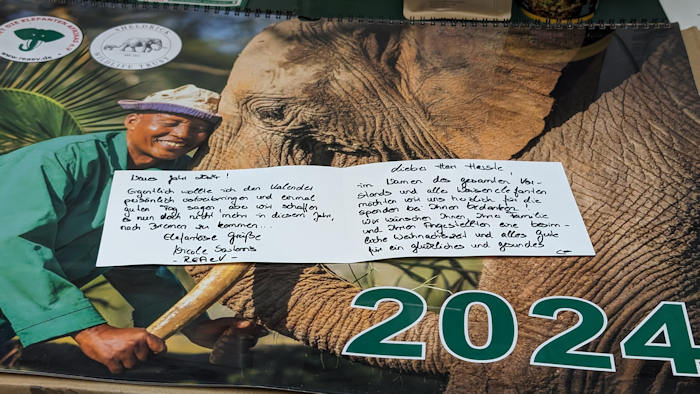 REA E.V.
www.reaev.de
SHELDRICK
WILDLIFE TRUST
Eigentlich wollte ich den Kalender
persönlich vorbeibringen und einmal
guten Tag sagen, aber wir schaffen
es nun doch nicht mehr in diesem Jahr,
nach Bremen zu kommen...
Elefantöse Grüße
Nicole
- REAeV -
Lieber Herr
im Namen des gesamten Vor-
stands und aller Waisenelefanten
möchten wir uns herzlich für die
Spenden bei Ihnen bedanken!
Wir wünschen Ihnen, Ihrer Familie
und Ihren Angestellten eine besinn-
liche Weihnachtszeit und alles Gute
für ein glückliches und gesundes
2024